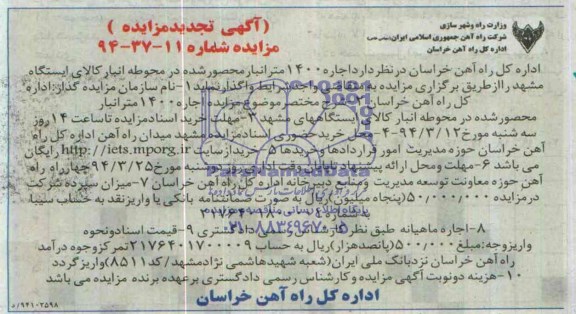 وزارت راه وشهر سازی
شرکت راه آهن جمهوری اسلامی ایران (سهامی خاص)
اداره کل راه آهن خراسان
(آگهی تجدیدمزایده)
مزایده شماره ۱۱-۳۷-۹۴
اداره کل راه آهن خراسان درنظردارداجاره ۱۴۰۰ مترانبارمحصورشده در محوطه انبار کالای ایستگاه
مشهد راازطریق برگزاری مزایده به متقاضیان واجد شرایط واگذارنماید ۱-نام سازمان مزایده گذار:اداره
کل راه آهن خراسان ۲-شرح مختصر موضوع مزایده:اجاره ۱۴۰۰ مترانبار
محصورشده در محوطه انبار کالای ایستگاههای مشهد ۳-مهلت خرید اسنادمزایده تاساعت ۱۴ روز
سه شنبه مورخ ۹۴/۳/۱۲ ۴-محل خریدحضوری اسنادمزایده مشهد میدان راه آهن اداره کل راه
آهن خراسان حوزه مدیریت امور قراردادها وخریدها ۵-خریدازسایت http://iets.mporg.ir رایگان
می باشد ۶-مهلت ومحل ارائه پیشنهاد تاپایان وقت اداری روز دوشنبه مورخ ۹۴/۳/۲۵ چهارراه راه
آهن حوزه معاونت توسعه مدیریت ومنابع دبیرخانه اداره کل راه آهن خراسان ۷-میزان سپرده شرکت
درمزایده ۵۰/۰۰۰/۰۰۰ (پنجاه میلیون) ریال به صورت ضمانتنامه بانکی یا واریزنقد به حساب سیبا
شماره
۸-اجاره ماهیانه طبق نظر کارشناس رسمی دادگستری ۹-قیمت اسنادونحوه
واریزوجه:مبلغ ۵۰۰/۰۰۰ (پانصدهزار) ریال به حساب ۲۱۷۶۴۰۱۷۰۰۰۰۹ تمرکزوجوه درآمد
راه آهن خراسان نزدبانک ملی ایران (شعبه شهیدهاشمی نژادمشهد/کد ۸۵۱۱) واریز گردد
۱۰-هزینه دونوبت آگهی مزایده و کارشناس رسمی دادگستری برعهده برنده مزایده می باشد
اداره کل راه آهن خراسان
۹۴۱۰۲۵۹۸/د
ParsNamadData
پایگاه اطلاع رسانی
۰۲۱-۸۸۳۴۹۶۷۰-۵